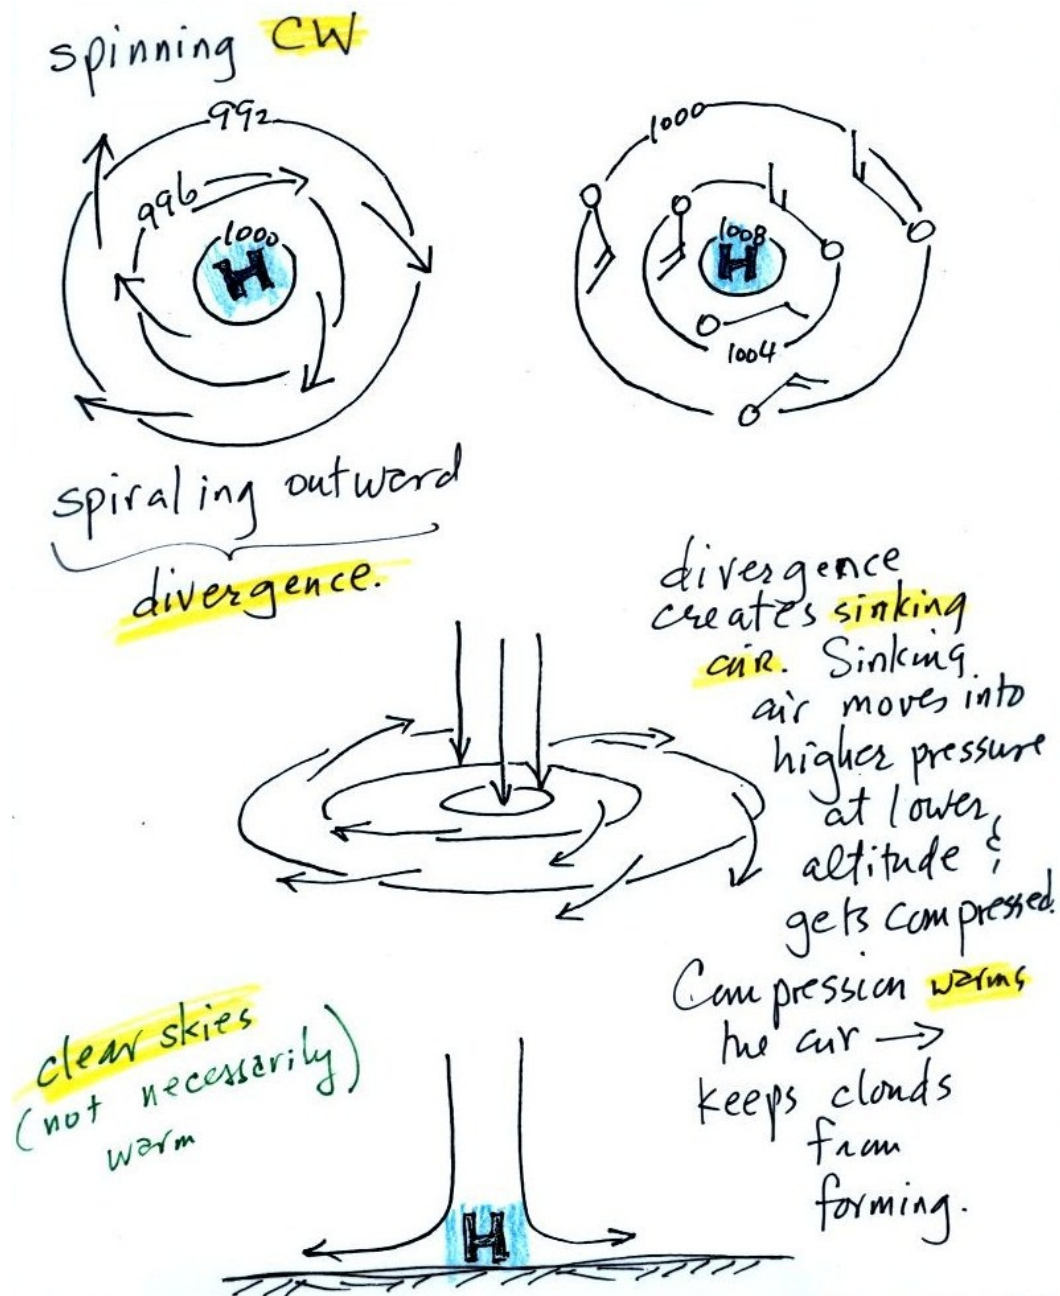 spinning CW
992
996
1000
H
1000
1008
H
1004
spiraling outward
divergence.
divergence
creates sinking
air. Sinking
air moves into
higher pressure
at lower
altitude &
gets compressed.
Compression warms
the air →
keeps clouds
from
forming.
clear skies
(not necessarily)
warm
H